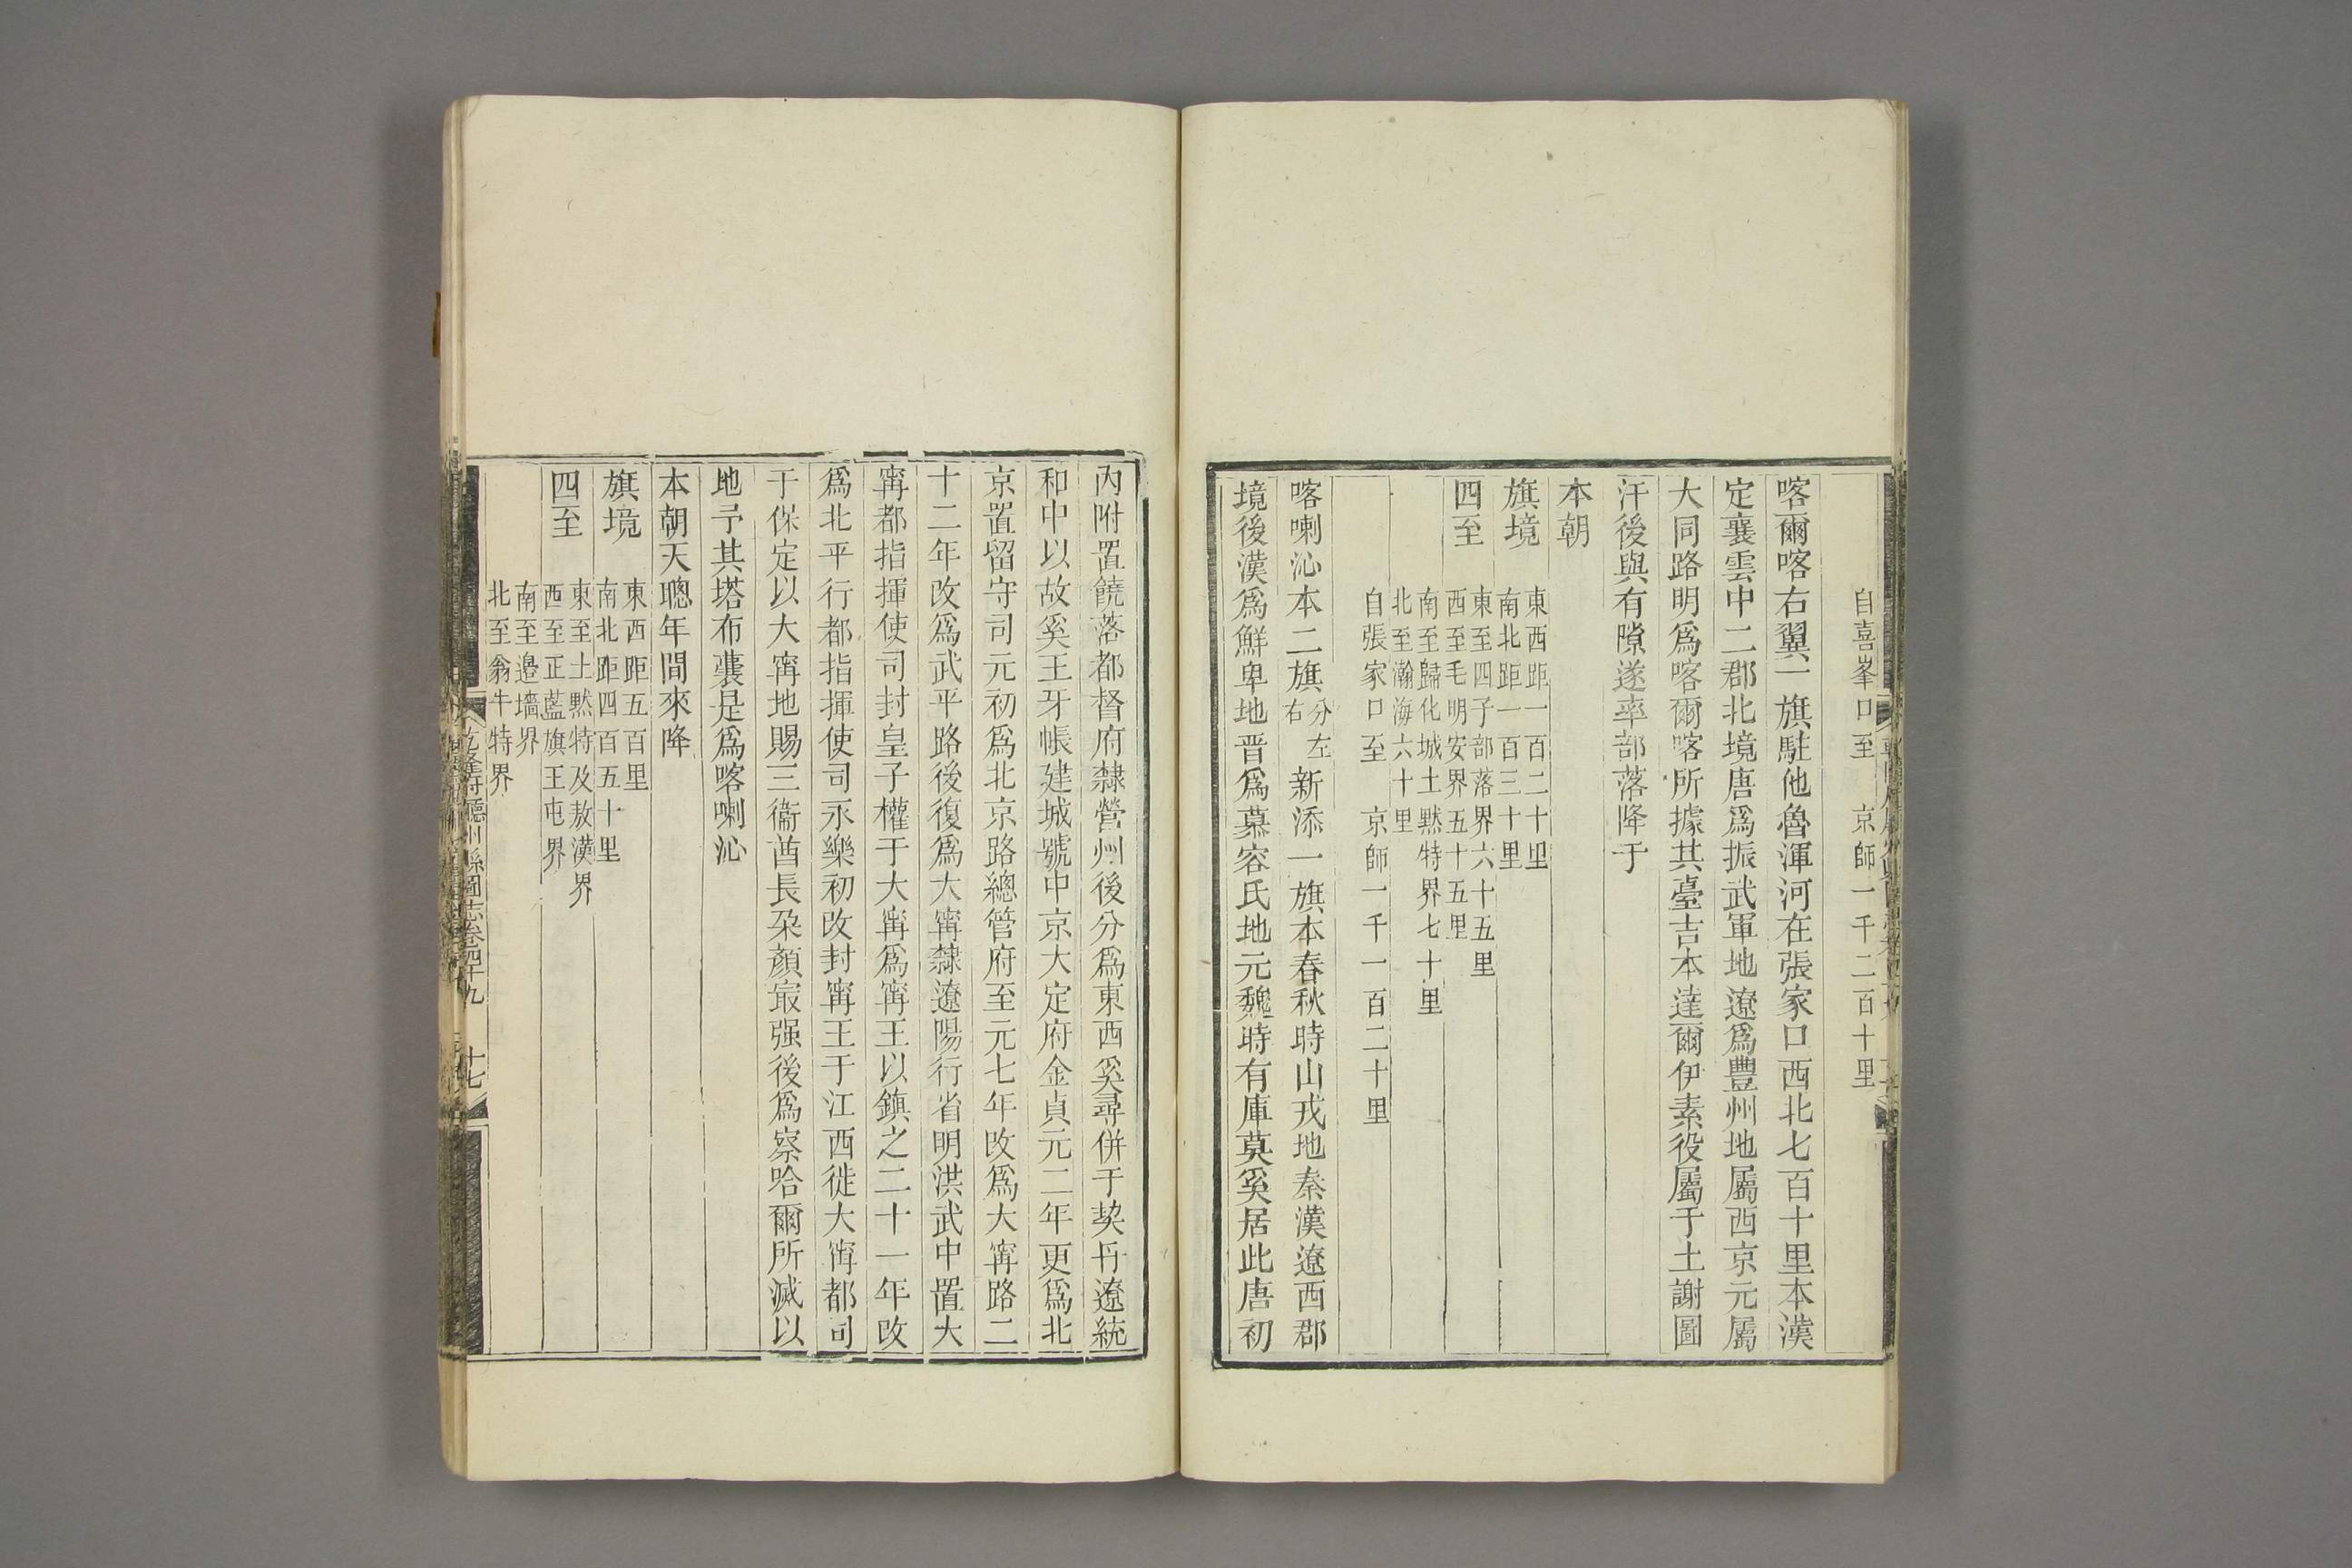 自喜峯口至　京師一千二百十里
喀爾喀右翼一旗駐他魯渾河在張家口西北七百十里本漢
定襄雲中二郡北境唐爲振武軍地遼爲豐州地屬西京元屬
大同路明爲喀爾喀所據其臺吉本達爾伊素役屬于土謝圖
汗後與有隙遂率部落降于
本朝
旗境　東西距一百二十里
南北距一百三十里
四至　東至四子部落界六十五里
西至毛明安界五十五里
南至歸化城土黙特界七十里
北至瀚海六十里
自張家口至　京師一千一百二十里
喀喇沁本二旗分左右新添一旗本春秋時山戎地秦漢遼西郡
境後漢爲鮮卑地晋爲慕容氏地元魏時有庫莫奚居此唐初
內附置饒落都督府隸營州後分爲東西奚尋併于契丹遼統
和中以故奚王牙帳建城號中京大定府金貞元二年更爲北
京置留守司元初爲北京路總管府至元七年改爲大甯路二
十二年改爲武平路後復爲大甯隸遼陽行省明洪武中置大
甯都指揮使司封皇子權于大甯爲甯王以鎮之二十一年改
爲北平行都指揮使司永樂初改封甯王于江西徙大甯都司
于保定以大甯地賜三衞酋長朶顏㝡强後爲察哈爾所滅以
地予其塔布囊是爲喀喇沁
本朝天聰年間來降
旗境　東西距五百里
南北距四百五十里
四至　東至土黙特及敖漢界
西至正藍旗王屯界
南至邉墻界
北至翁牛特界
乾隆府廳州縣圖志卷四十九　十七